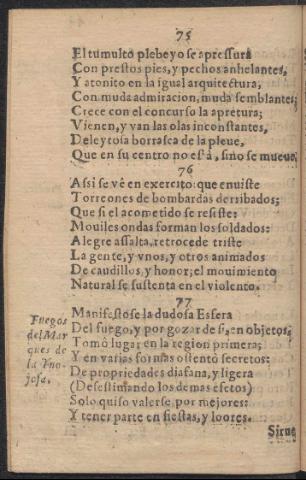 75
El tumulto plebeyo se apressura
Con prestos pies, y pechos anhelantes,
Y atonito en la igual arquitectura,
Con muda admiracion, muda semblantes;
Crece con el concurso la apretura;
Vienen, y van las olas inconstantes,
Deleytosa borrasca de la pleue,
Que en su centro no està, sino se mueue.
76
Assi se vè en exercito: que enuiste
Torreones de bombardas derribados;
Que si el acometido se resiste:
Mouiles ondas forman los soldados:
Alegre assalta, retrocede triste
La gente, y vnos, y otros animados
De caudillos, y honor; el mouimiento
Natural se sustenta en el violento.
77
Manifestòse la dudosa Esfera
Fuegos del Marques de la Ynojosa.
Del fuego, y por gozar de si, en objetos,
Tomò lugar en la region primera;
Y en varias formas ostentò secretos:
De propriedades diafana, y ligera
(Desestimando los demas efetos)
Solo quiso valerse por mejores:
Y tener parte en fiestas, y loores.
Sirue